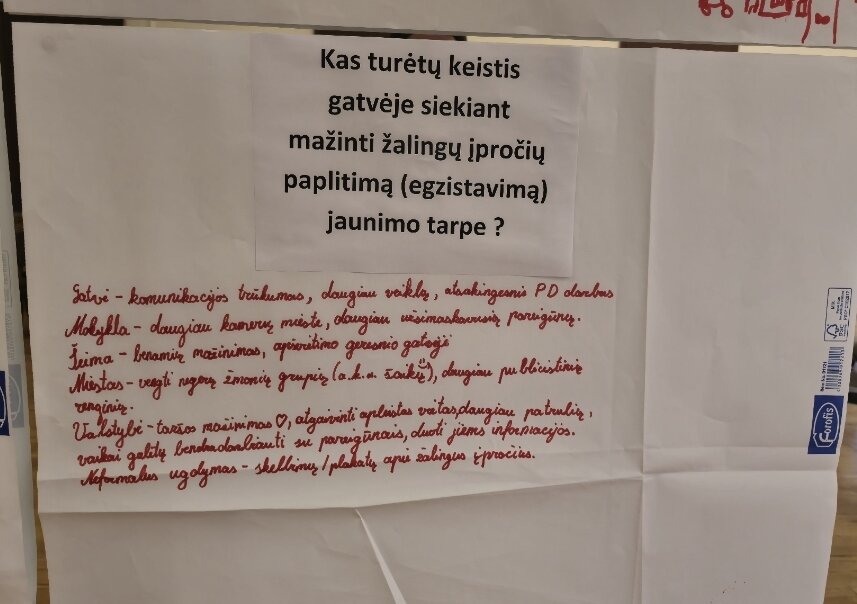 Kas turėtų keistis
gatvėje siekiant
mažinti žalingų įpročių
paplitimą (egzistavimą)
jaunimo tarpe ?
Gatvė - komunikacijos trūkumas, daugiau veiklų, atsakingesnis PD darbas
Mokykla - daugiau kamerų mieste, daugiau užsimaskavusių pareigūnų.
Šeima - benamių mažinimas, apšvietimo geresnio gatvėje
Miestas - vengti negerų žmonių grupių (a.k.a. šaikų), daugiau publicistinių
renginių.
Valstybė - taršos mažinimas ♡, atgaivinti apleistas vietas, daugiau patrulių,
vaikai galėtų bendradarbiauti su pareigūnais, duoti jiems informacijos.
Neformalus ugdymas - skelbimų/plakatų apie žalingus įpročius.
forofis